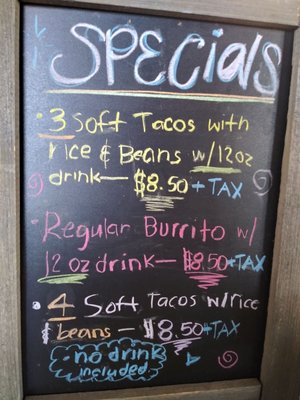 SPECialS
• 3 Soft Tacos with
rice & Beans w/12oz
drink— $8.50 + TAX
• Regular Burrito w/
12 oz drink— $8.50+TAX
• 4 Soft Tacos w/rice
& beans — $8.50+TAX
• no drink
included.